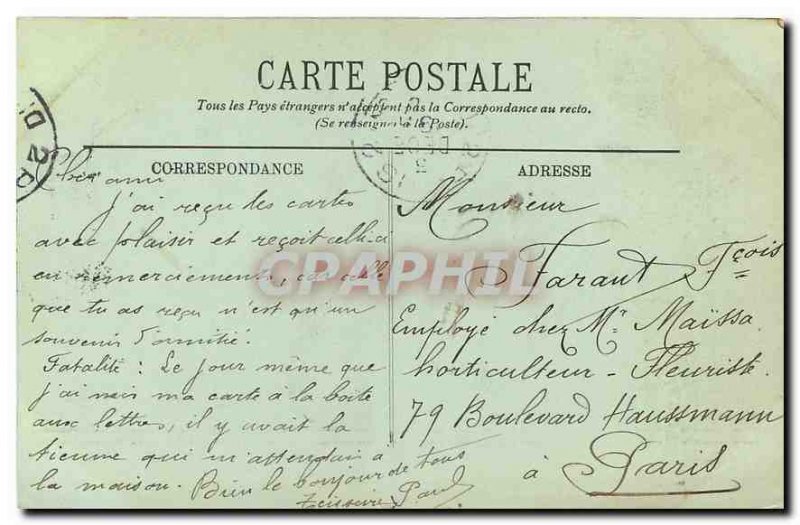 CARTE POSTALE
Tous les Pays étrangers n'acceptent pas la Correspondance au recto.
(Se renseigner à la Poste).
CORRESPONDANCE
Cher ami
J'ai reçu les cartes
avec plaisir et reçoit celle-ci
en remerciements, car celle
que tu as reçu n'est qu'un
souvenir d'amitié.
Fatalité : Le jour même que
j'ai mis ma carte à la boîte
aux lettres, il y avait la
tienne qui m'attendait à
la maison. Bien le bonjour de tous
Paul
ADRESSE
Monsieur
Faraut Fçois
Employé chez Mr Maïssa
horticulteur - Fleuriste
79 Boulevard Haussmann
à Paris
CPAPHIL